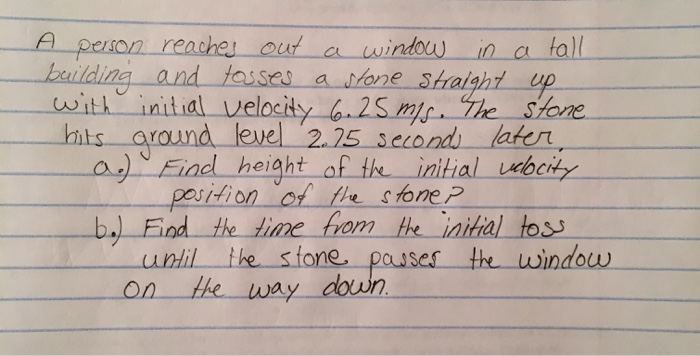 A person reaches out a window in a tall
building and tosses a stone straight up
with initial velocity 6.25 m/s. The stone
hits ground level 2.75 seconds later.
a.) Find height of the initial velocity
position of the stone?
b.) Find the time from the initial toss
until the stone passes the window
on the way down.